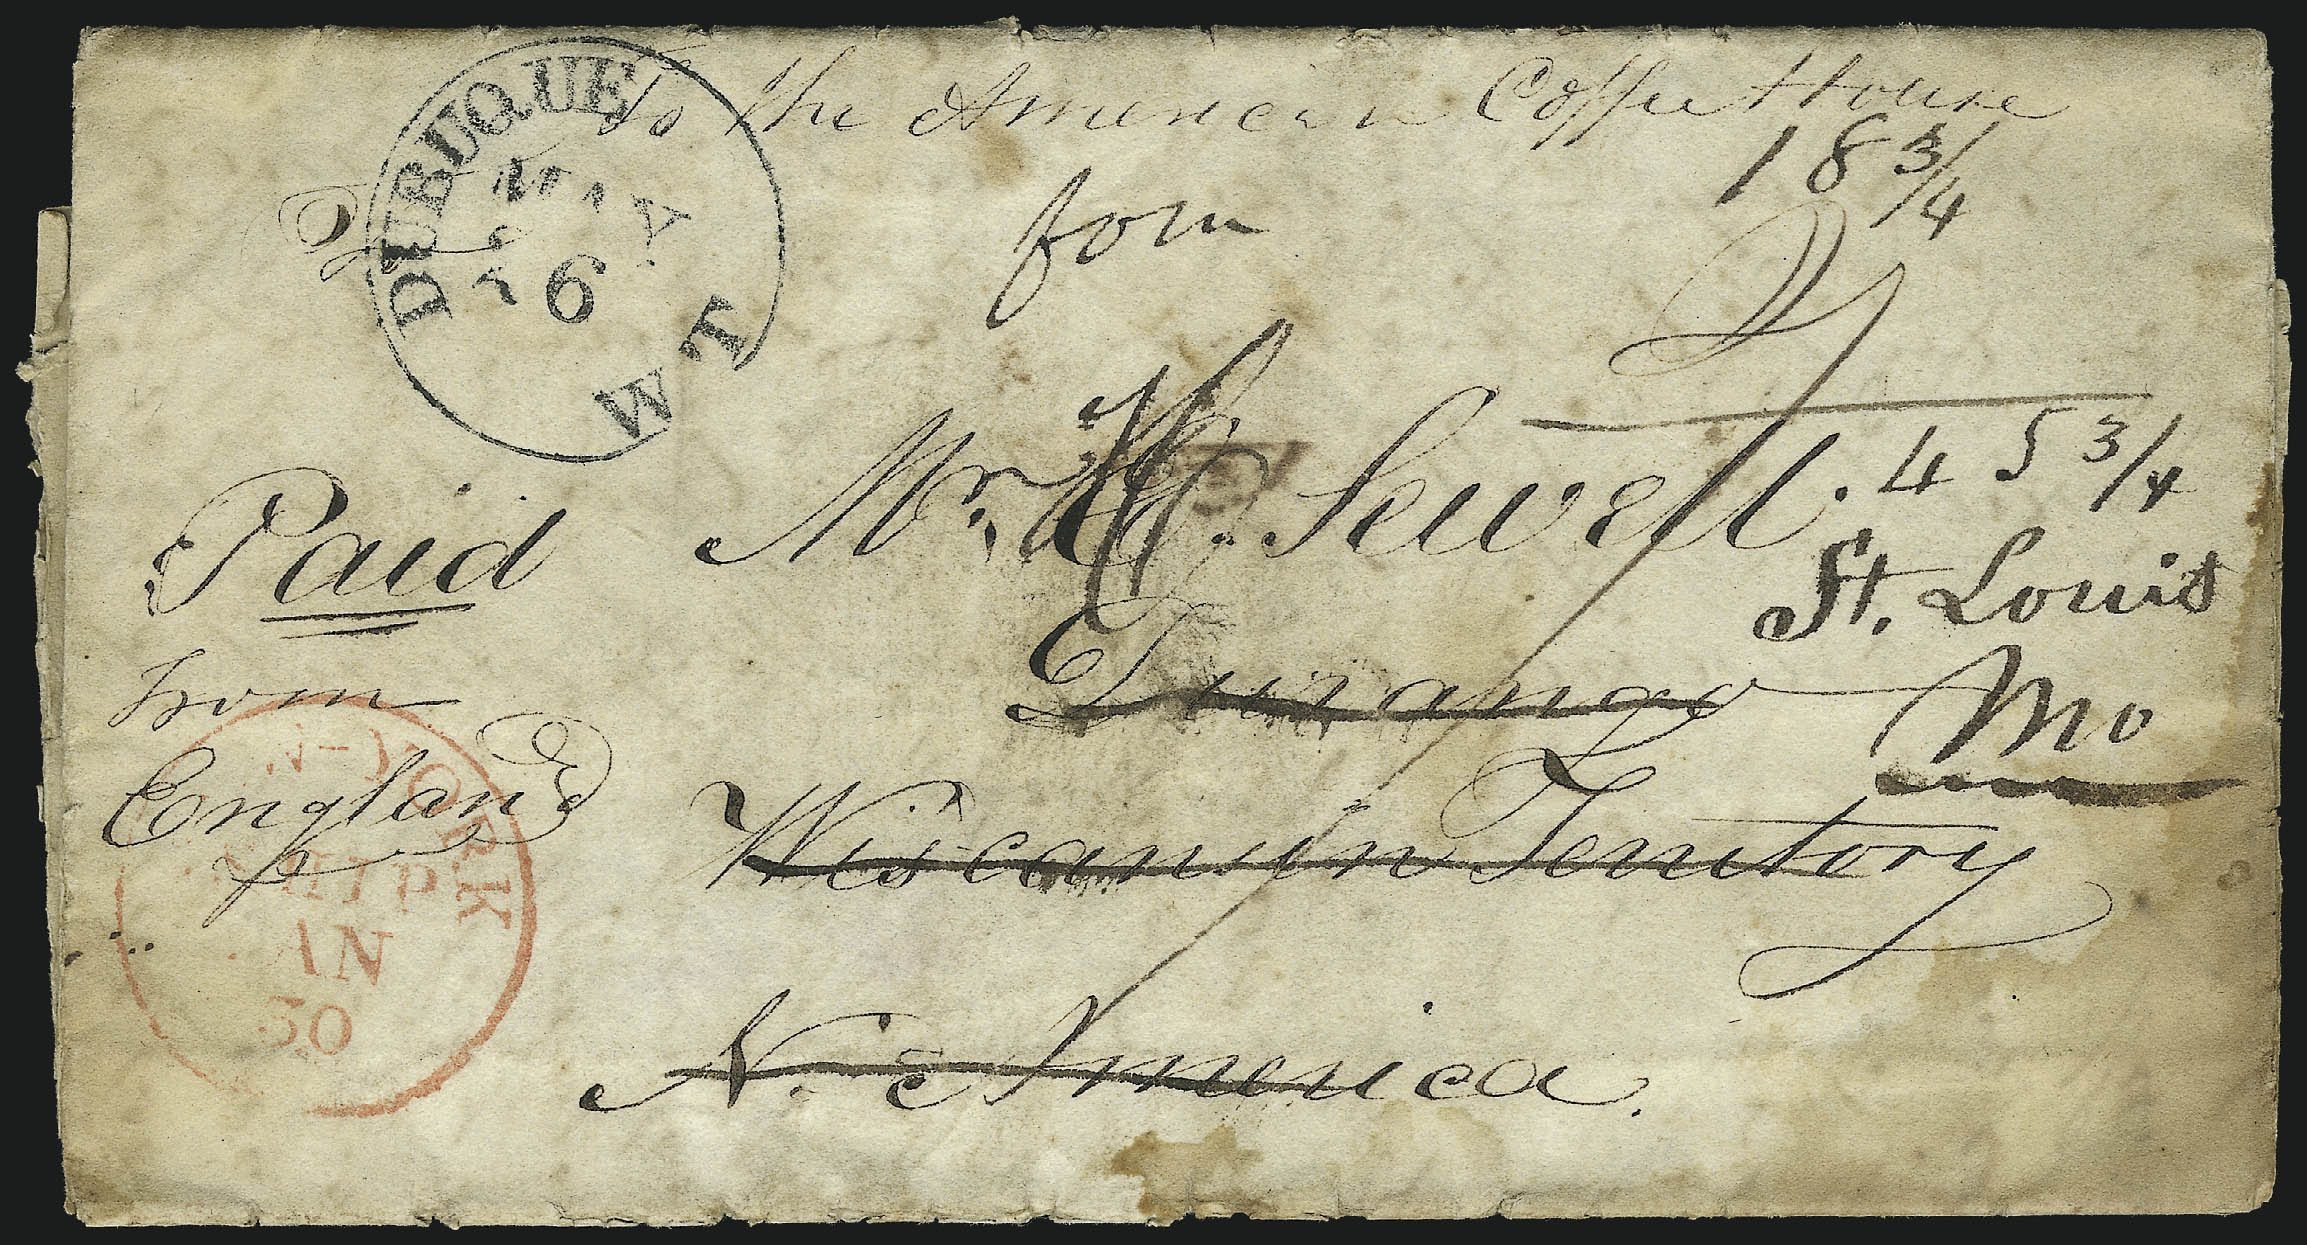 To the American Coffee House
DUBUQUE
W.T.
MAY
6
form
18 3/4
Mr. H. Sewell.
45 3/4
St. Louis
Mo
Paid
from
England
Durango
Wisconsin Territory
N. America.
W-YORK
SHIP
AN
30